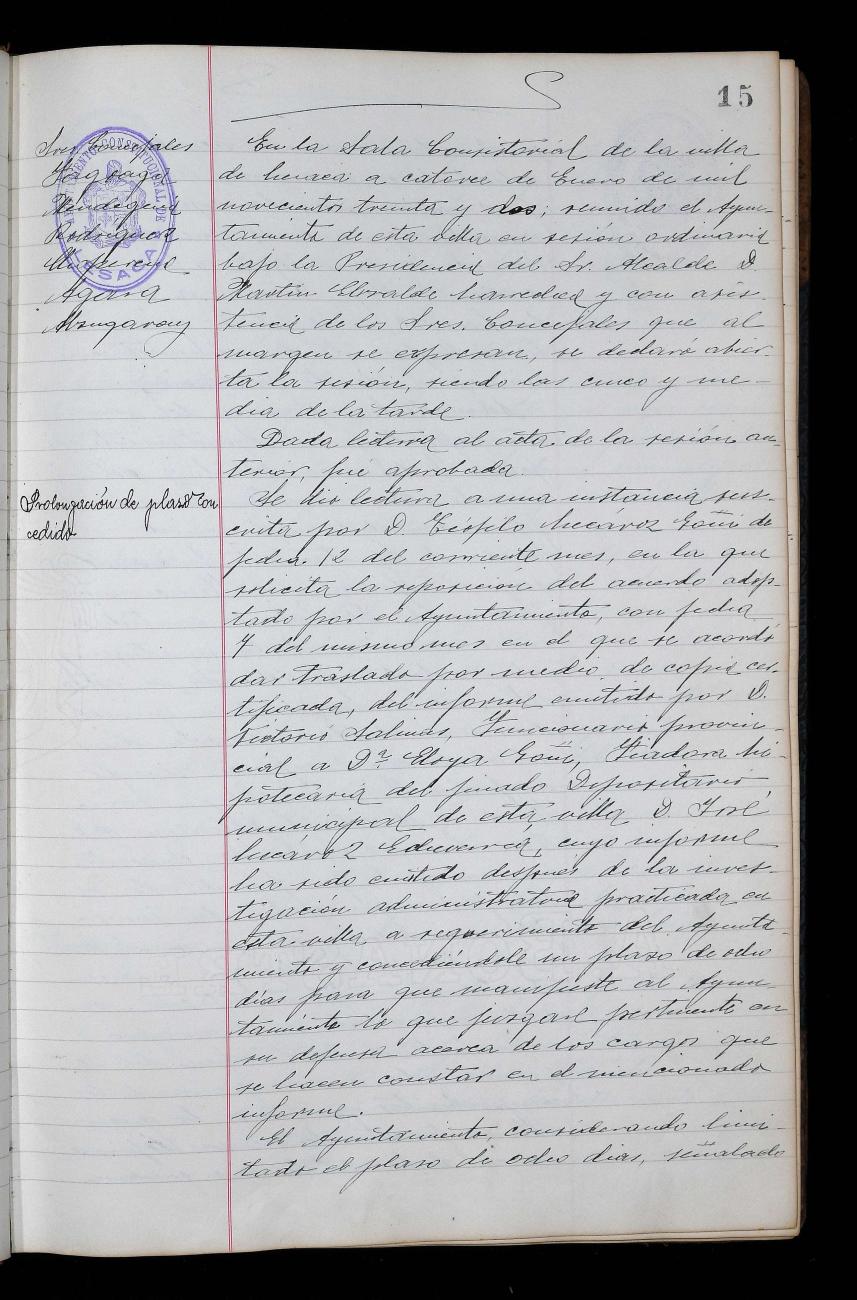 15
Sres. Concejales
Rodriguez
En la Sala Consistorial de la villa
de Lesaca a catorce de Enero de mil
novecientos treinta y dos; reunido el Ayun-
tamiento de esta villa en sesión ordinaria
bajo la Presidencia del Sr. Alcalde D.
Martin
y con asis-
tencia de los Sres. Concejales que al
margen se expresan, se declaró abier-
ta la sesión, siendo las cinco y me-
dia de la tarde.
Dada lectura al acta de la sesión an-
terior, fué aprobada.
Prolongación de plazo con
cedido
Se dio lectura a una instancia sus-
crita por D. Teofilo Lucároz Goñi de
fecha 12 del corriente mes, en la que
solicita la reposicion del acuerdo adop-
tado por el Ayuntamiento, con fecha
7 del mismo mes en el que se acordó
dar traslado por medio de copia cer-
tificada, del informe emitido por D.
Victorio Salinas, Funcionario provin-
cial a Dª Eloya Goñi, Fiadora hi-
potecaria del finado Depositario
municipal de esta villa D. José
Lucároz Echeverria, cuyo informe
ha sido emitido después de la inves-
tigación administrativa practicada en
esta villa a requerimiento del Ayunta-
miento y concediéndole un plazo de ocho
días para que manifieste al Ayun-
tamiento lo que juzgare pertinente en
su defensa acerca de los cargos que
se hacen constar en el mencionado
informe.
El Ayuntamiento, considerando limi-
tado el plazo de ocho dias, señalado
AYUNTAMIENTO CONSTITUCIONAL DE LESACA